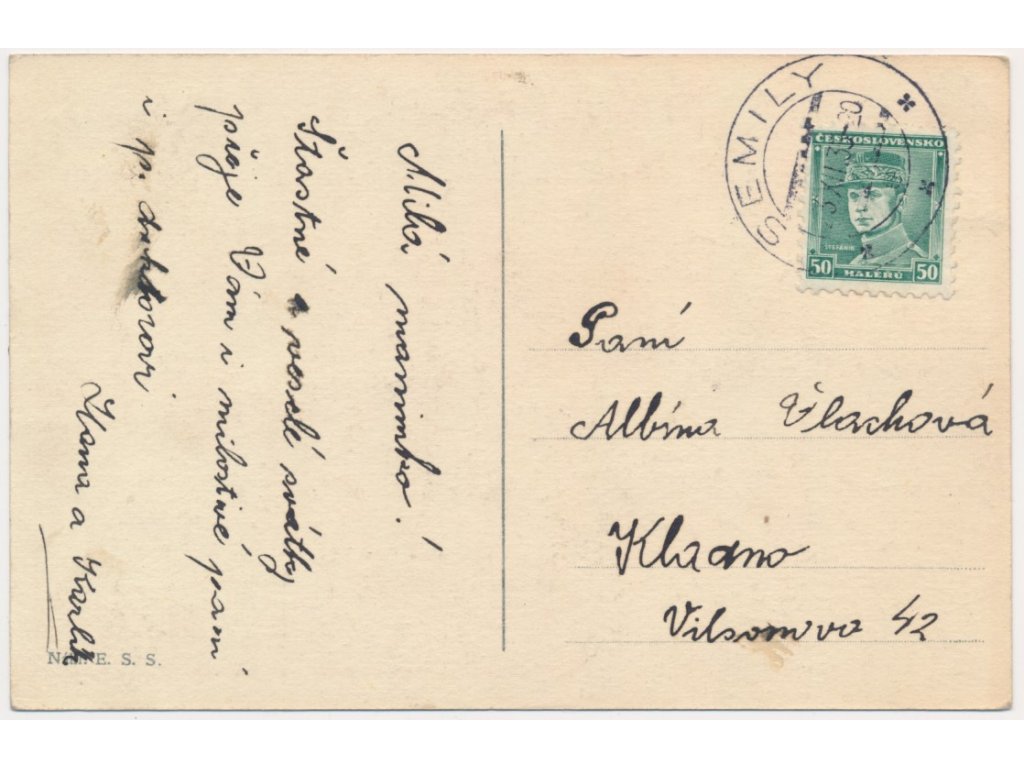 Milá maminko!
Štastné a veselé svátky
přeje Vám i milostivé paní
i p. doktorovi
Hana a Karlík
N. S. S.
SEMILY
ČESKOSLOVENSKO
ŠTEFÁNIK
50 HALÉŘŮ 50
Paní
Albína Vlachová
Kladno
Vilsonova 42